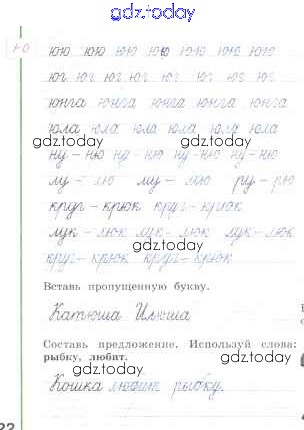 gdz.today
ю юю юю юю юю юю юю юю
юг юг юг юг юг юг юг юг
юнга юнга юнга юнга юнга
gdz.today gdz.today
юла юла юла юла юла юла
ну-ню ну-ню ну-ню ну-ню
gdz.today
лу-лю лу-лю ру-рю
круг-крюк круг-крюк
gdz.today
лук-люк лук-люк лук-люк
gdz.today
круг-крюк круг-крюк
Вставь пропущенную букву.
gdz.today
Катюша Илюша
Составь предложение. Используй слова:
рыбку, любит.
gdz.today
Кошка любит рыбку.
gdz.today